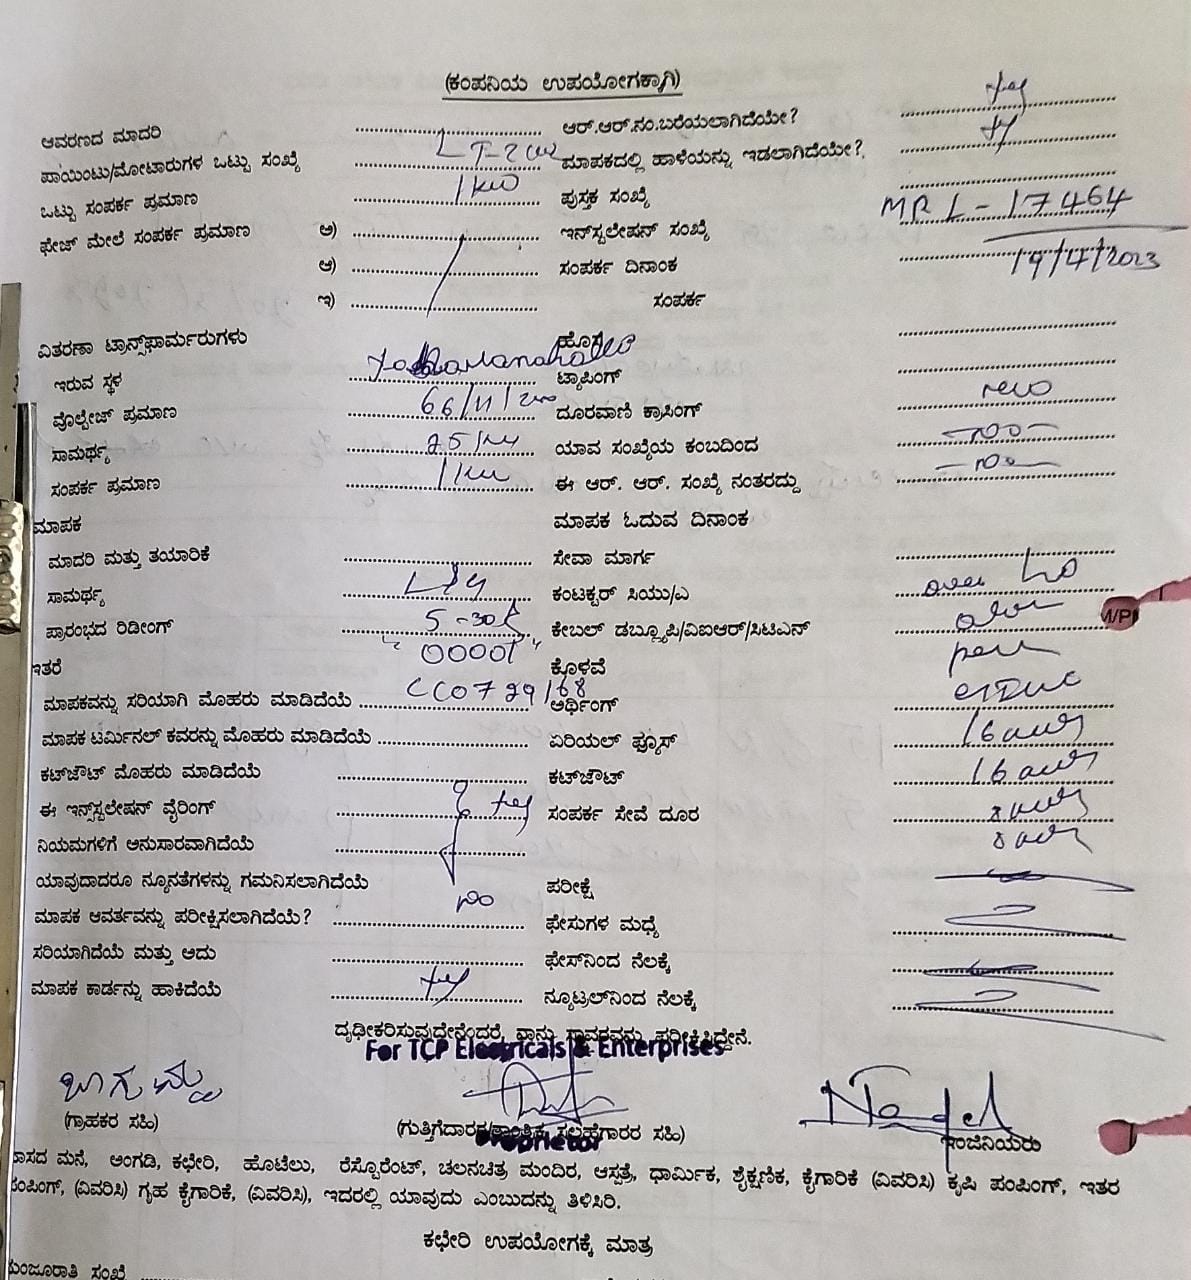 (ಕಂಪನಿಯ ಉಪಯೋಗಕ್ಕಾಗಿ)
ಆವರಣದ ಮಾದರಿ ಆರ್.ಆರ್.ನಂ.ಬರೆಯಲಾಗಿದೆಯೇ? yes
ಪಾಯಿಂಟು/ಮೋಟಾರುಗಳ ಒಟ್ಟು ಸಂಖ್ಯೆ ಮಾಪಕದಲ್ಲಿ ಹಾಳೆಯನ್ನು ಇಡಲಾಗಿದೆಯೇ?
ಒಟ್ಟು ಸಂಪರ್ಕ ಪ್ರಮಾಣ 1 KW ಪುಸ್ತಕ ಸಂಖ್ಯೆ
ಫೇಜ್ ಮೇಲೆ ಸಂಪರ್ಕ ಪ್ರಮಾಣ ಅ) ಇನ್‌ಸ್ಟಲೇಷನ್ ಸಂಖ್ಯೆ MRL-17464
ಆ) ಸಂಪರ್ಕ ದಿನಾಂಕ 19/4/2023
ಇ) ಸಂಪರ್ಕ
ವಿತರಣಾ ಟ್ರಾನ್ಸ್‌ಫಾರ್ಮರುಗಳು ಹೊಸ
ಇರುವ ಸ್ಥಳ ಟ್ಯಾಪಿಂಗ್
ವೊಲ್ಟೇಜ್ ಪ್ರಮಾಣ 66/11/ ದೂರವಾಣಿ ಕ್ರಾಸಿಂಗ್
ಸಾಮರ್ಥ್ಯ 25 ಯಾವ ಸಂಖ್ಯೆಯ ಕಂಬದಿಂದ
ಸಂಪರ್ಕ ಪ್ರಮಾಣ 1 KW ಈ ಆರ್. ಆರ್. ಸಂಖ್ಯೆ ನಂತರದ್ದು
ಮಾಪಕ ಮಾಪಕ ಓದುವ ದಿನಾಂಕ
ಮಾದರಿ ಮತ್ತು ತಯಾರಿಕೆ ಸೇವಾ ಮಾರ್ಗ
ಸಾಮರ್ಥ್ಯ L&G ಕಂಟಕ್ಟರ್ ಸಿಯು/ಎ over
ಪ್ರಾರಂಭದ ರಿಡೀಂಗ್ 5-30A ಕೇಬಲ್ ಡಬ್ಲ್ಯೂಪಿ/ವಿಐಆರ್/ಸಿಟಿಎನ್
ಇತರೆ "00001" ಕೊಳವೆ
ಮಾಪಕವನ್ನು ಸರಿಯಾಗಿ ಮೊಹರು ಮಾಡಿದೆಯೆ CC072916 8 ಅರ್ಥಿಂಗ್
ಮಾಪಕ ಟರ್ಮಿನಲ್ ಕವರನ್ನು ಮೊಹರು ಮಾಡಿದೆಯೆ ಏರಿಯಲ್ ಫ್ಯೂಸ್
ಕಟ್‌ಔಟ್ ಮೊಹರು ಮಾಡಿದೆಯೆ ಕಟ್‌ಔಟ್
ಈ ಇನ್ಸ್‌ಸ್ಟಲೇಷನ್ ವೈರಿಂಗ್ yes ಸಂಪರ್ಕ ಸೇವೆ ದೂರ
ನಿಯಮಗಳಿಗೆ ಅನುಸಾರವಾಗಿದೆಯೆ
ಯಾವುದಾದರೂ ನ್ಯೂನತೆಗಳನ್ನು ಗಮನಿಸಲಾಗಿದೆಯೆ ಪರೀಕ್ಷೆ
ಮಾಪಕ ಆವರ್ತವನ್ನು ಪರೀಕ್ಷಿಸಲಾಗಿದೆಯೆ? no ಫೇಸುಗಳ ಮಧ್ಯೆ
ಸರಿಯಾಗಿದೆಯೆ ಮತ್ತು ಅದು ಫೇಸ್‌ನಿಂದ ನೆಲಕ್ಕೆ
ಮಾಪಕ ಕಾರ್ಡನ್ನು ಹಾಕಿದೆಯೆ yes ನ್ಯೂಟ್ರಲ್‌ನಿಂದ ನೆಲಕ್ಕೆ
ದೃಢೀಕರಿಸುವುದೇನೆಂದರೆ, ನಾನು ಸ್ಥಾವರವನ್ನು ಪರೀಕ್ಷಿಸಿದ್ದೇನೆ.
For TCP Electricals & Enterprises
ಭಾಗ್ಯಮ್ಮ
(ಗ್ರಾಹಕರ ಸಹಿ) (ಗುತ್ತಿಗೆದಾರರ/ತಾಂತ್ರಿಕ ಸಲಹೆಗಾರರ ಸಹಿ) ಇಂಜಿನಿಯರು
Proprietor
ವಾಸದ ಮನೆ, ಅಂಗಡಿ, ಕಛೇರಿ, ಹೊಟೆಲು, ರೆಸ್ಟೊರೆಂಟ್, ಚಲನಚಿತ್ರ ಮಂದಿರ, ಆಸ್ಪತ್ರೆ, ಧಾರ್ಮಿಕ, ಶೈಕ್ಷಣಿಕ, ಕೈಗಾರಿಕೆ (ವಿವರಿಸಿ) ಕೃಷಿ ಪಂಪಿಂಗ್, ಇತರ
ಪಂಪಿಂಗ್, (ವಿವರಿಸಿ) ಗೃಹ ಕೈಗಾರಿಕೆ, (ವಿವರಿಸಿ), ಇದರಲ್ಲಿ ಯಾವುದು ಎಂಬುದನ್ನು ತಿಳಿಸಿರಿ.
ಕಛೇರಿ ಉಪಯೋಗಕ್ಕೆ ಮಾತ್ರ
ಮಂಜೂರಾತಿ ಸಂಖ್ಯೆ